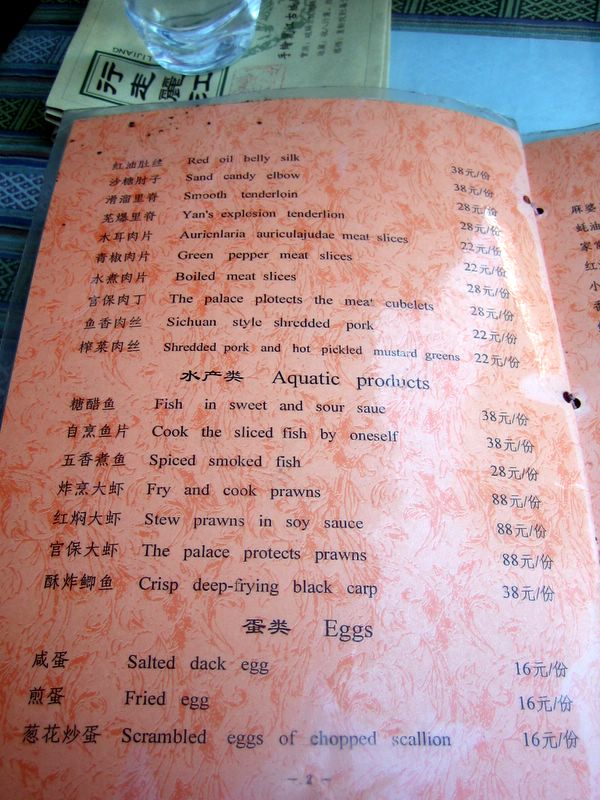 LIJIANG
行走麗江
红油肚丝 Red oil belly silk 38元/份
沙糖肘子 Sand candy elbow 38元/份
滑溜里脊 Smooth tenderloin 28元/份
芫爆里脊 Yan's explosion tenderlion 28元/份
木耳肉片 Auricnlaria auriculajudae meat slices 22元/份
青椒肉片 Green pepper meat slices 22元/份
水煮肉片 Boiled meat slices 28元/份
宫保肉丁 The palace plotects the meat cubelets 28元/份
鱼香肉丝 Sichuan style shredded pork 22元/份
榨菜肉丝 Shredded pork and hot pickled mustard greens 22元/份
水产类 Aquatic products
糖醋鱼 Fish in sweet and sour saue 38元/份
自烹鱼片 Cook the sliced fish by oneself 38元/份
五香煮鱼 Spiced smoked fish 28元/份
炸烹大虾 Fry and cook prawns 88元/份
红焖大虾 Stew prawns in soy sauce 88元/份
宫保大虾 The palace protects prawns 88元/份
酥炸鲫鱼 Crisp deep-frying black carp 38元/份
蛋类 Eggs
咸蛋 Salted dack egg 16元/份
煎蛋 Fried egg 16元/份
葱花炒蛋 Scrambled eggs of chopped scallion 16元/份
麻婆
蚝油
家
红
小